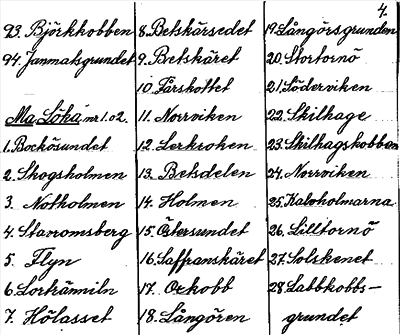 4.
93. Björkkobben
94. Janmatsgrundet
Ma Löká nr 1.02.
1. Bockösundet
2. Skogsholmen
3. Notholmen
4. Stavromsberg
5 Flyn
6. Lortränniln
7. Hölasset
8. Betskärsedet
9. Betskäret
10. Fårskottet
11. Norrviken
12. Lerkroken
13. Betsdelen
14. Holmen
15. Östersundet
16. Saffranskäret
17. Orkobb
18. Långören
19. Långörsgrunden
20. Stortornö
21. Söderviken
22. Skilhage
23. Skilhagskobban
24. Norrviken
25. Kalvholmarna
26. Lilltornö
27. Solskenet
28. Labbkobbs-
grundet